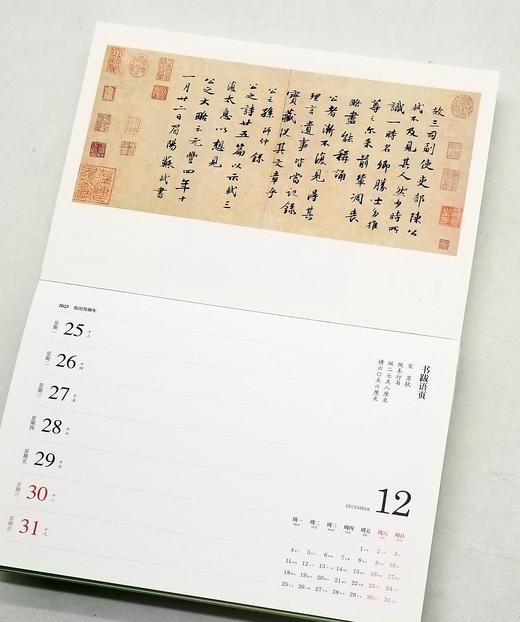 故三司副使吏部陳公
軾不及見其人然少時所
識一時名卿勝士多推
尊之尔来前輩凋喪
略盡能稱誦
公者漸不復見得其
理言遺事皆當記錄
寶藏況其文章乎
公之孫師仲錄
公之詩廿五篇以示軾三
復太息以想見
公之大略云元豐四年十
一月廿二日眉陽蘇軾書
2023 农历癸卯年
星期一 25 十三
星期二 26 十四
星期三 27 十五
星期四 28 十六
星期五 29 十七
星期六 30 十八
星期日 31 十九
书跋语页
宋 苏轼
纸本行书
纵二七点八厘米
横六〇点六厘米
DECEMBER 12
周一 周二 周三 周四 周五 周六 周日
1 2 3
4 5 6 7 8 9 10
11 12 13 14 15 16 17
18 19 20 21 22 23 24
25 26 27 28 29 30 31